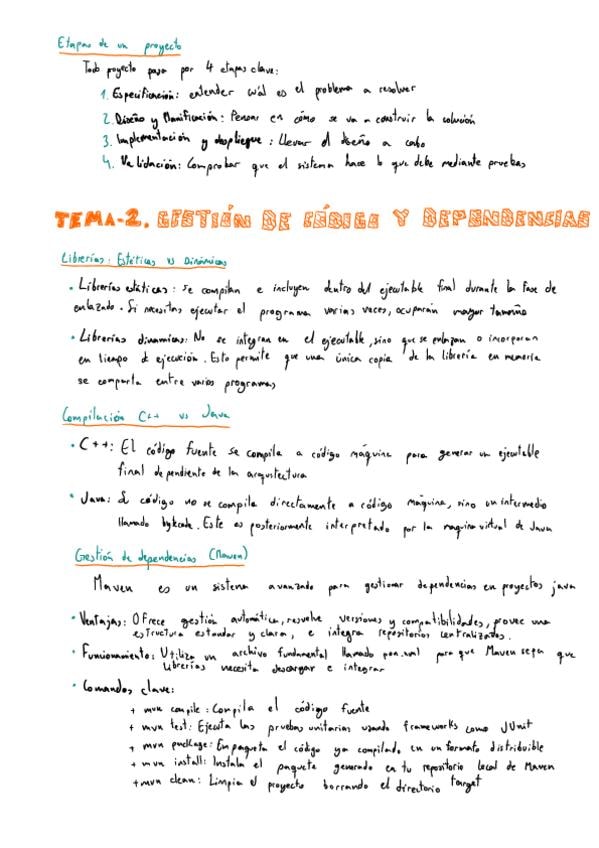 Etapas de un proyecto
Todo proyecto pasa por 4 etapas clave:
1. Especificación: entender cuál es el problema a resolver
2. Diseño y Planificación: Pensar en cómo se va a construir la solución
3. Implementación y despliegue: Llevar el diseño a cabo
4. Validación: Comprobar que el sistema hace lo que debe mediante pruebas
TEMA-2. GESTIÓN DE CÓDIGO Y DEPENDENCIAS
Librerías: Estáticas vs Dinámicas
• Librerías estáticas: Se compilan e incluyen dentro del ejecutable final durante la fase de
enlazado. Si necesitas ejecutar el programa varias veces, ocuparán mayor tamaño
• Librerías dinamicas: No se integran en el ejecutable, sino que se enlazan o incorporan
en tiempo de ejecución. Esto permite que una única copia de la librería en memoria
se comparta entre varios programas
Compilación C++ vs Java
• C++: El código fuente se compila a código máquina para generar un ejecutable
final dependiente de la arquitectura
• Java: El código no se compila directamente a código máquina, sino un intermedio
llamado bytecode. Este es posteriormente interpretado por la maquina virtual de Java
Gestión de dependencias (Maven)
Maven es un sistema avanzado para gestionar dependencias en proyectos java
• Ventajas: Ofrece gestión automática, resuelve versiones y compatibilidades, provee una
estructura estandar y clara, e integra repositorios centralizados.
• Funcionamiento: Utiliza un archivo fundamental llamado pom.xml para que Maven sepa que
librerías necesita descargar e integrar
• Comandos clave:
+ mvn compile: Compila el código fuente
+ mvn test: Ejecuta las pruebas unitarias usando frameworks como JUnit
+ mvn package: Empaqueta el código ya compilado en un formato distribuible
+ mvn install: Instala el paquete generado en tu repositorio local de Maven
+ mvn clean: Limpia el proyecto borrando el directorio target